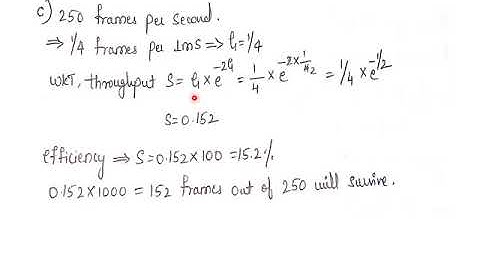 c) 250 frames per second.
⇒ 1/4 frames per 1ms ⇒ G=1/4
WKT, throughput S = G × e^-2G = 1/4 × e^-2×1/4 2 = 1/4 × e^-1/2
S=0.152
Efficiency ⇒ S=0.152×100 =15.2%
0.152×1000 = 152 frames out of 250 will survive.